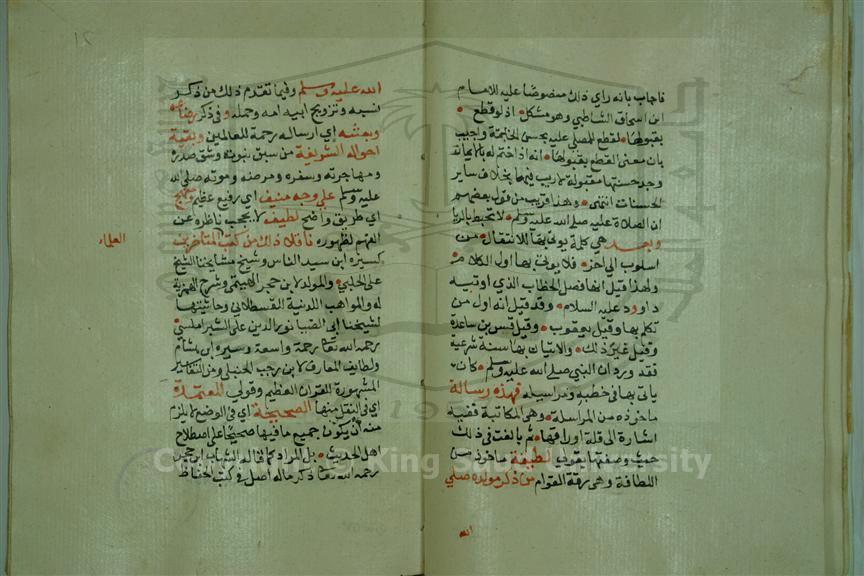 فاجاب بانه راي ذلك منصوصا عليه الامام
ابن اسحاق الشاطبي وهو مشكل اذ لو قطع
بقبولها لقطع للمصلي عليه بحسن الخاتمة واجيب
بان معنى القطع بقبولها انه اذا ختم له بالايمان
وجد حسنتها مقبولة بلا ريب فيها بخلاف ساير
الحسنات انتهى وهذا قريب من قول بعضهم
ان الصلاة عليه صلى الله عليه وسلم لا يحبط بالريا
وبعد هي كلمة يوتى بها للانتقال من
اسلوب الى اخر فلا يوتى بها اول الكلام
ولهذا قيل انها فصل الخطاب الذي اوتيه
داوود عليه السلام وقد قيل انه اول من
تكلم بها وقيل يعقوب وقيل قس بن ساعدة
وقيل غير ذلك والاتيان بها سنة شرعية
فقد ورد ان النبي صلى الله عليه وسلم كان
ياتي بها في خطبه ومراسيله فهذه رسالة
ماخوذه من المراسلة وهي المكاتبة ففيه
اشارة الى قلة اوراقها ثم بالغت في ذلك
حيث وصفتها بقولي لطيفة ماخوذ من
اللطافة وهي رقة القوام من ذكر مولده صلى
الله
الله عليه وسلم وفيما تقدم ذلك من ذكر
نسبه وتزويج ابيه امه وحمله وفي ذكر رضاعه
وبعثته اي ارساله رحمة للعالمين وبقية
احواله الشريفة من سبق نبوته وشق صدره
ومهاجرته وسفره ومرضه وموته صلى الله
عليه وسلم على وجه منيف اي رفيع عظيم ومنهج
اي طريق واضح لطيف لا يحجب ناظره عن
الفهم لظهوره ناقلا ذلك من كتب المتاخرين
العلماء
كسيرة ابن سيد الناس وشيخ مشايخنا الشيخ
على الحلبي والمولد لابن حجر الهيتمي وشرح الهمزية
له والمواهب اللدنية القسطلاني وحاشيتها
لشيخنا ابي الضيا نور الدين علي الشبراملسي
رحمه الله تعا رحمة واسعة وسيرة ابن هشام
ولطايف المعارف لابن رجب الحنبلي ومن التفاسير
المشهورة القران العظيم وقولي المعتمدة
اي في النقل منها الصحيحة اي في الوضع لا يلزم
منه ان يكون جميع ما فيها صحيحا على اصطلاح
اهل الحديث بل المراد كما قاله الشهاب ابن حجر
رحمه الله تعا ذكر ماله اصل في كتب الحفاظ
Copyright © King Saud University